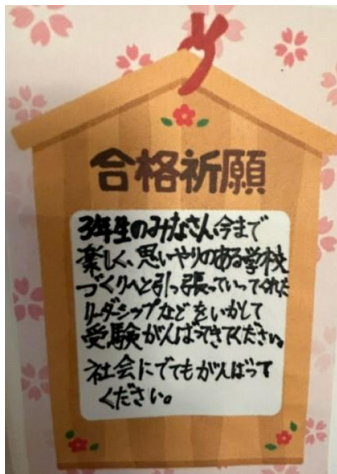 合格祈願
3年生のみなさん、今まで
楽しく、思いやりのある学校
づくりへと引っ張っていってくれた
リーダーシップなどをいかして
受験がんばってきてください。
社会にでてもがんばって
ください。